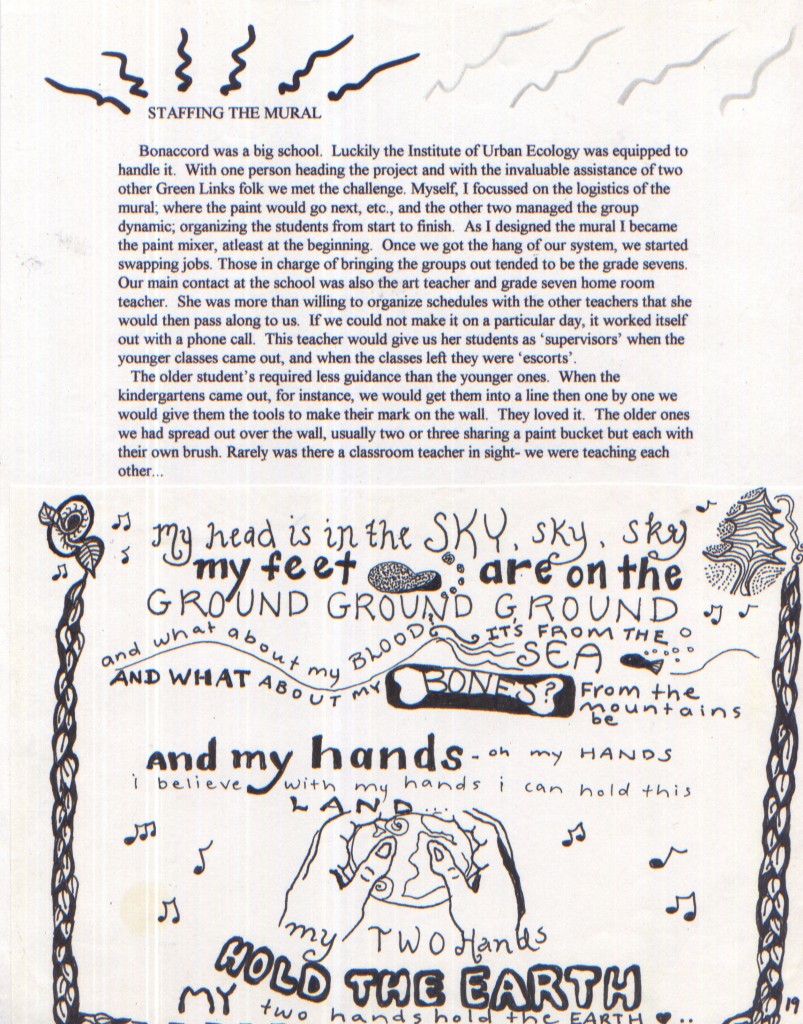 STAFFING THE MURAL
Bonaccord was a big school. Luckily the Institute of Urban Ecology was equipped to
handle it. With one person heading the project and with the invaluable assistance of two
other Green Links folk we met the challenge. Myself, I focussed on the logistics of the
mural; where the paint would go next, etc., and the other two managed the group
dynamic; organizing the students from start to finish. As I designed the mural I became
the paint mixer, atleast at the beginning. Once we got the hang of our system, we started
swapping jobs. Those in charge of bringing the groups out tended to be the grade sevens.
Our main contact at the school was also the art teacher and grade seven home room
teacher. She was more than willing to organize schedules with the other teachers that she
would then pass along to us. If we could not make it on a particular day, it worked itself
out with a phone call. This teacher would give us her students as ‘supervisors’ when the
younger classes came out, and when the classes left they were ‘escorts’.
The older student’s required less guidance than the younger ones. When the
kindergartens came out, for instance, we would get them into a line then one by one we
would give them the tools to make their mark on the wall. They loved it. The older ones
we had spread out over the wall, usually two or three sharing a paint bucket but each with
their own brush. Rarely was there a classroom teacher in sight- we were teaching each
other...
My head is in the SKY, sky, sky
my feet are on the
GROUND GROUND GROUND
and what about my BLOOD? IT'S FROM THE
SEA
AND WHAT ABOUT MY BONES? From the
mountains
be
And my hands - oh my HANDS
i believe with my hands i can hold this
LAND...
my TWO Hands
HOLD THE EARTH
MY two hands hold the EARTH ♥..
19